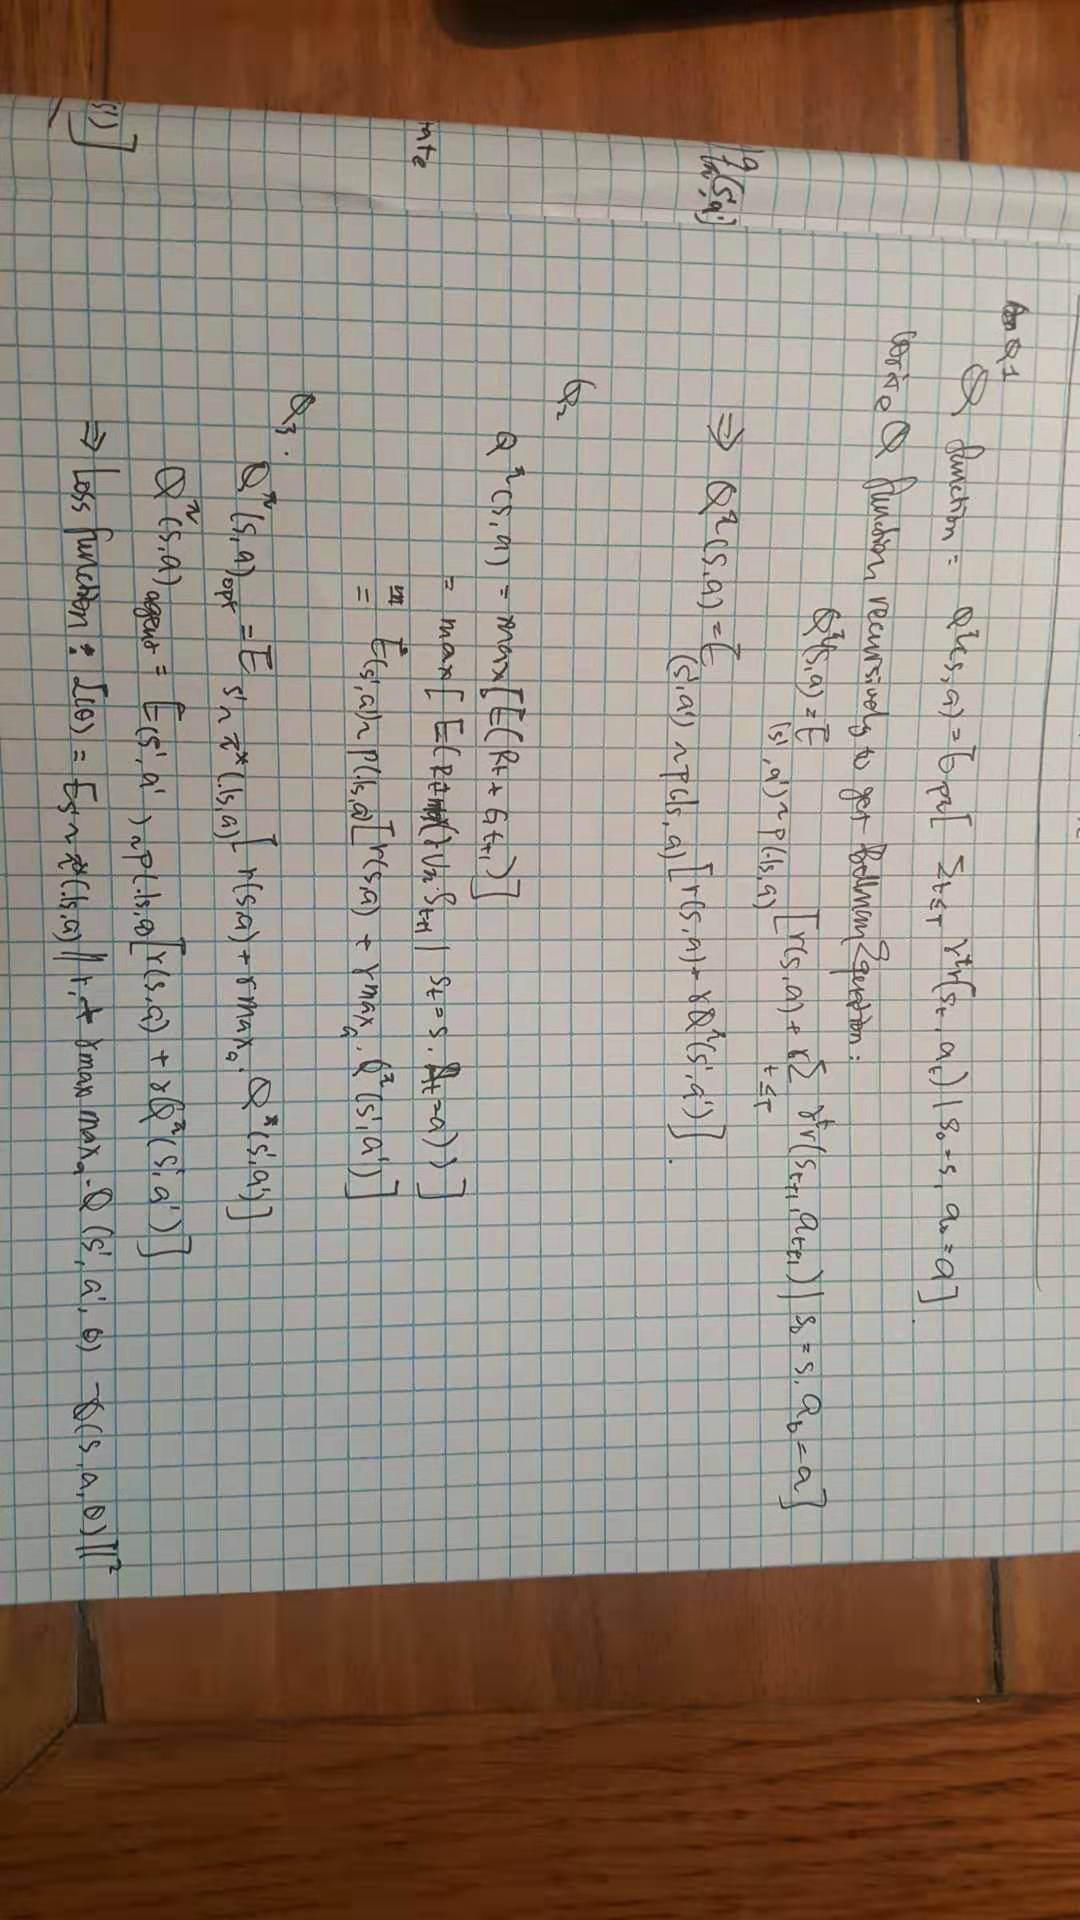 Q1
Q function = Q^π(s,a) = E_pπ[ Σ_{t≤T} γ^t r(s_t, a_t) | s_0 = s, a_0 = a].
Write Q function recursively to get Bellman Equation:
Q^π(s,a) = E_{(s',a')~p(.|s,a)} [r(s,a) + γ Σ_{t≤T} γ^t r(s_{t+1}, a_{t+1}) | s_0 = s, a_0 = a]
(s',a')
⇒ Q^π(s,a) = E_{(s',a')~p(.|s,a)} [r(s,a) + γ Q^π(s',a')].
Q2
Q^π(s,a) = max[E(R_t + G_{t+1})]
= max[ E(R_t + γ V_π S_{t+1} | S_t = s. A_t = a)) ]
tate
= E_{(s',a)~p(.|s,a)} [r(s,a) + γ max_a. Q^π(s',a')]
Q3.
Q^π(s,a)_opt = E_{s'~π*(.|s,a)} [ r(s,a) + γ max_a. Q*(s',a')]
Q^π(s,a)_agent = E_{(s',a')~p(.|s,a)} [r(s,a) + γ Q^π(s',a')]
s')]
⇒ Loss function: L(θ) = E_{s'~π*(.|s,a)} || r + γ max max_a. Q(s', a', θ) - Q(s, a, θ)||^2